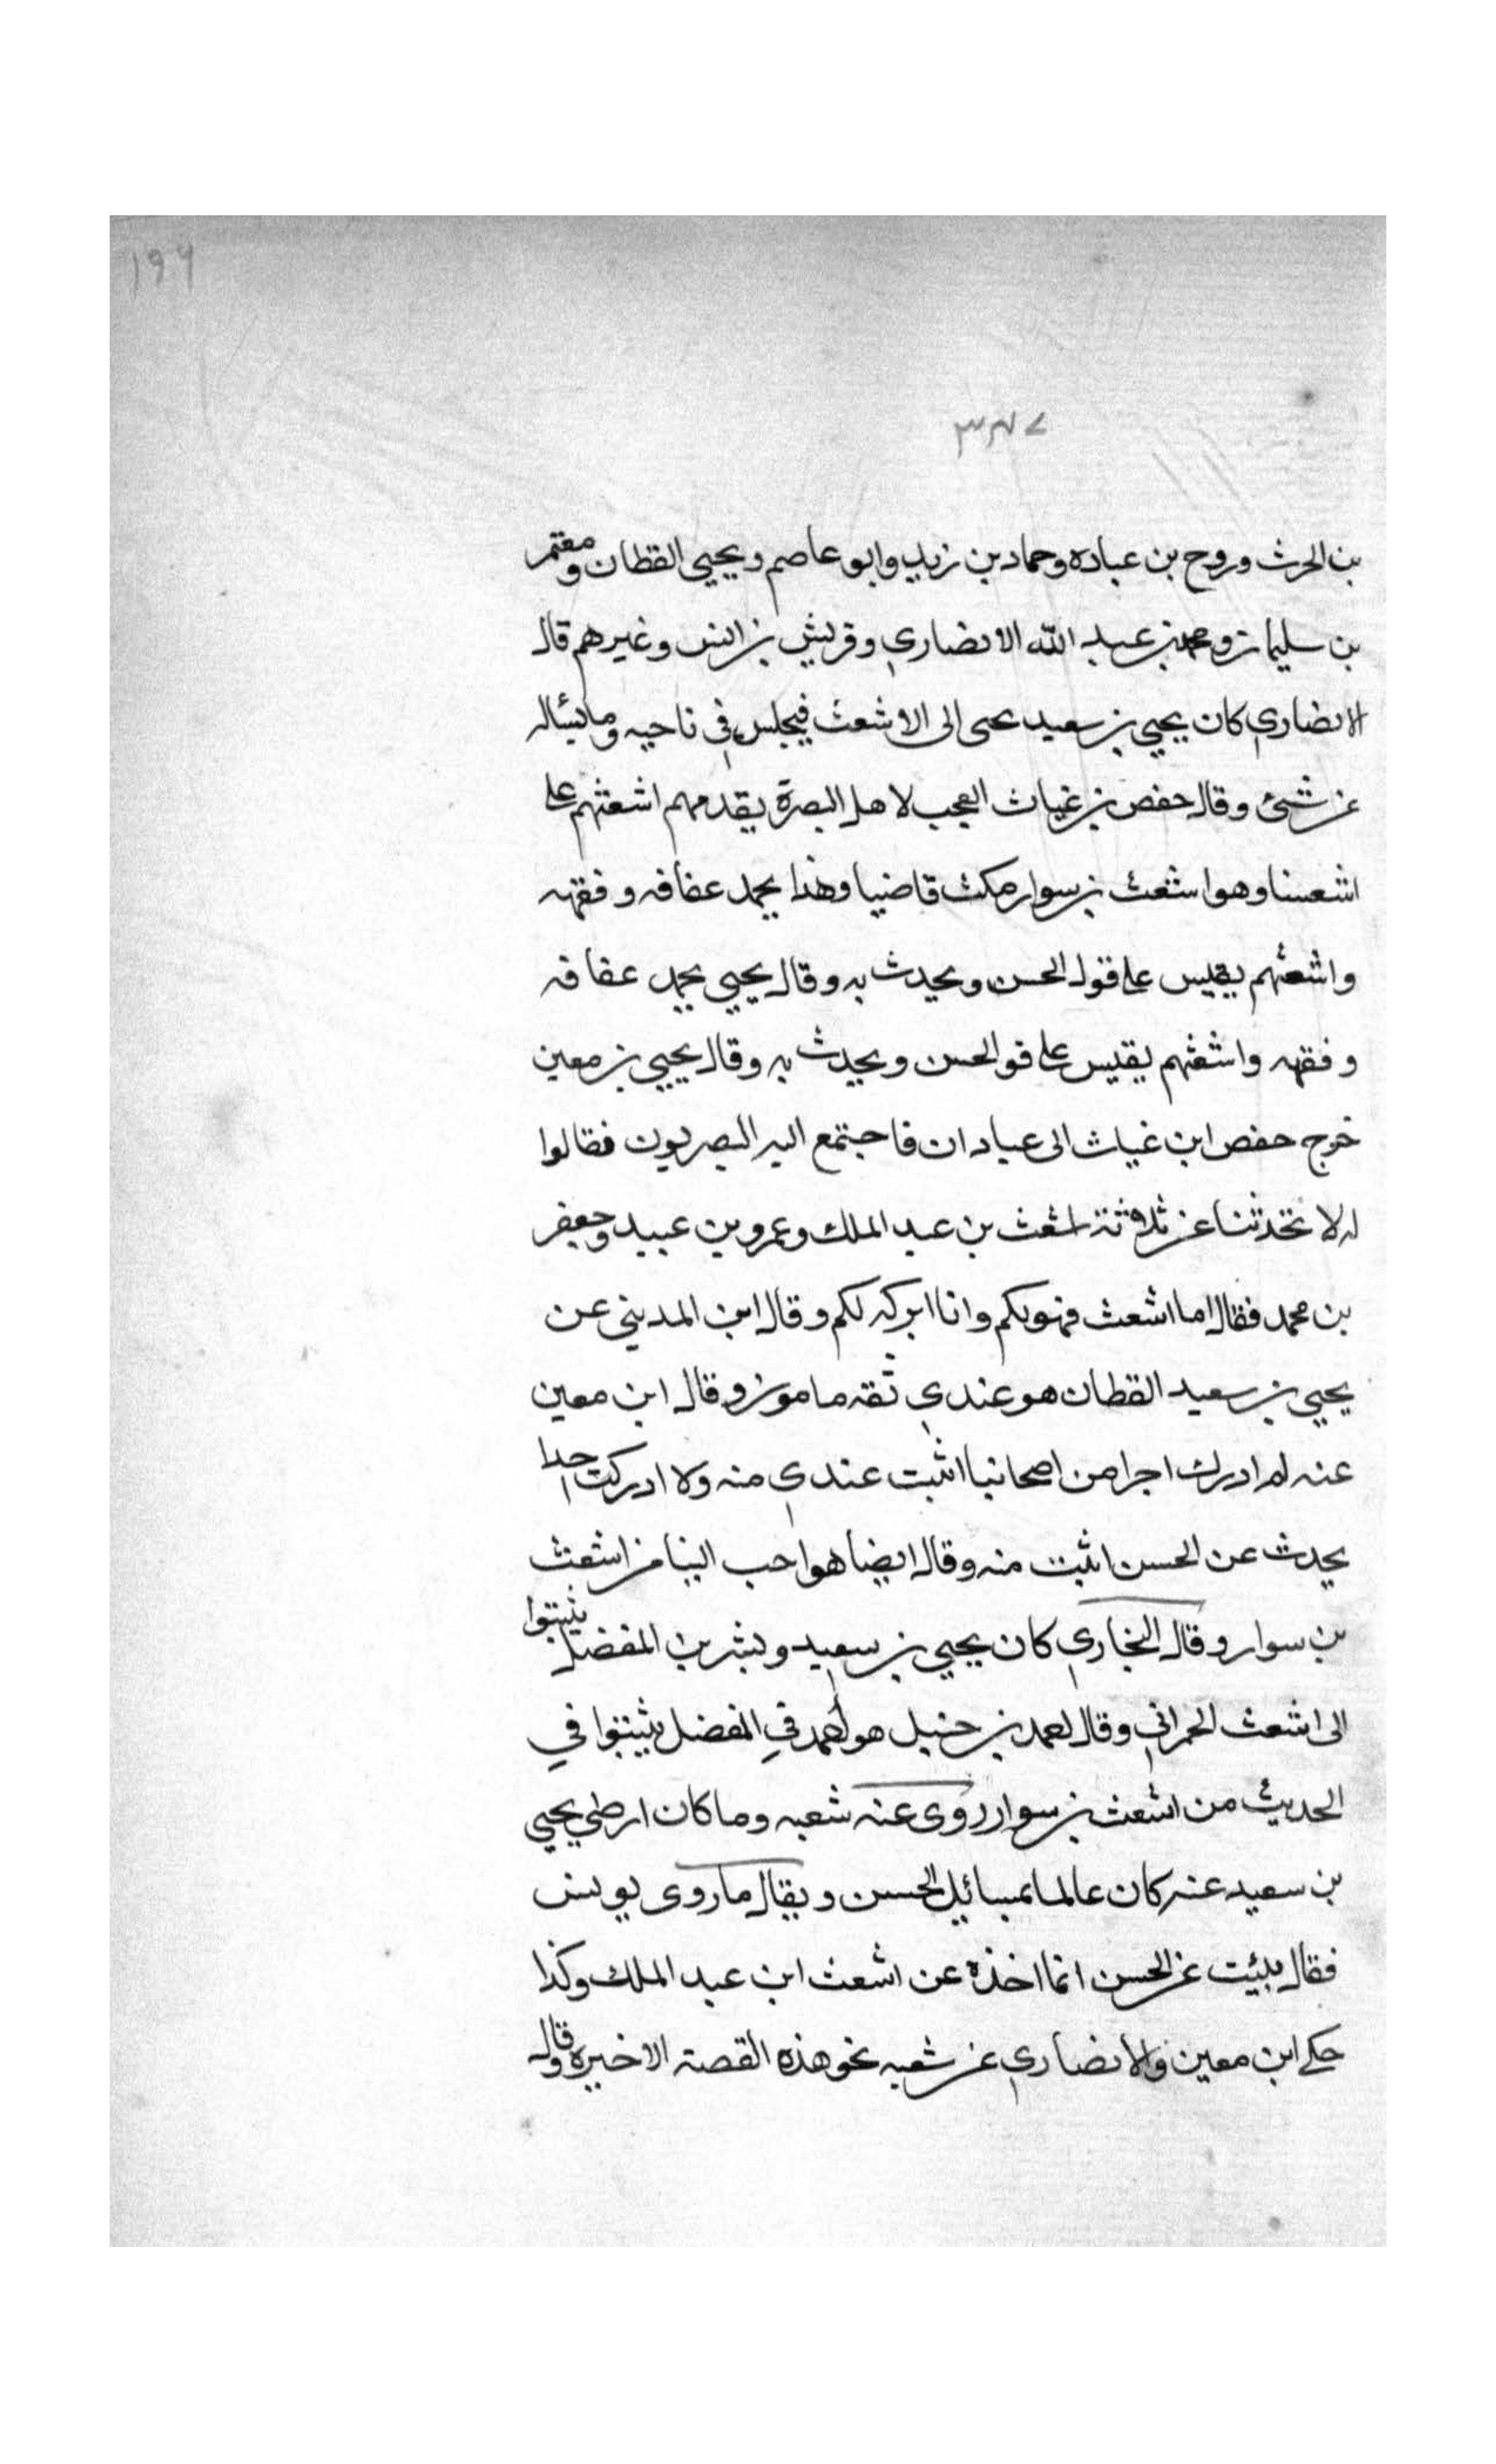 ١٩٩
٣٨٧
بن الحرث وروح بن عباده وحماد بن زيد وابو عاصم ويحيى القطان ومعتمر
بن سليمان ومحمد بن عبد الله الانصاري وقريش بن انس وغيرهم قال
الانصاري كان يحيى بن سعيد يحى الى الاشعث فيجلس في ناحيه وما يسٔاله
عن شئ وقال حفص بن غياث العجب لاهل البصرة يقدمهم اشعثهم على
اشعسنا وهو اشعث بن سوار مكث قاضيا وهذا يحمد عفافه وفقهه
واشعثهم يقيس على قول الحسن ويحدث به وقال يحيى يحمد عفافه
وفقهه واشعثهم يقيس على قو الحسن ويحدث به وقال يحيى بن معين
خرج حفص ابن غياث الى عبادان فاجتمع اليه البصريون فقالوا
له لا تحدثنا عن ثلاثة اشعث بن عبد الملك وعمرو بن عبيد وجعفر
بن محمد فقال اما اشعث فهو لكم وانا اتركه لكم وقال ابن المديني عن
يحيى بن سعيد القطان هو عندي ثقه مامون وقال ابن معين
عنه لم ادرك اجرا من اصحانبا اثبت عندي منه ولا ادركت احدا
يحدث عن الحسن اثبت منه وقال ايضا هو احب الينا من اشعث
بن سوار وقال البخاري كان يحيى بن سعيد وبشر بن المفضل يثبتوا
الى اشعث الحمراني وقال احمد بن حنبل هو احمد في المفضل يثبتوا في
الحديث من اشعث بن سوار روى عنه شعبه وما كان ارضي يحيى
بن سعيد عنه كان عالما بمسائيل الحسن ويقال ما روى يونس
فقال بيئت عن الحسن انما اخذه عن اشعث ابن عبد الملك وكذا
حكى ابن معين والانصاري عن شعبه نحو هذه القصة الاخيره وقال